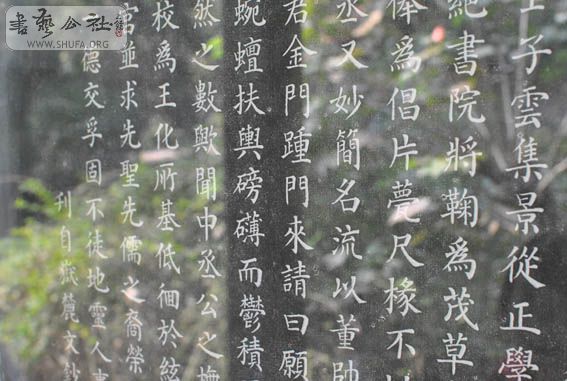 子雲集景從正學
絶書院將鞠為茂草
俸為倡片甍尺椽不
丞又妙簡名流以董帥
君金門踵門來請曰願
蜿蟺扶輿磅礴而鬱積
然之數歟聞中丞公之撫
校為王化所基低徊於絃
宮並求先聖先儒之裔榮
德交孚固不徒地靈人
刊自嶽麓文鈔
書藝公社
WWW.SHUFA.ORG